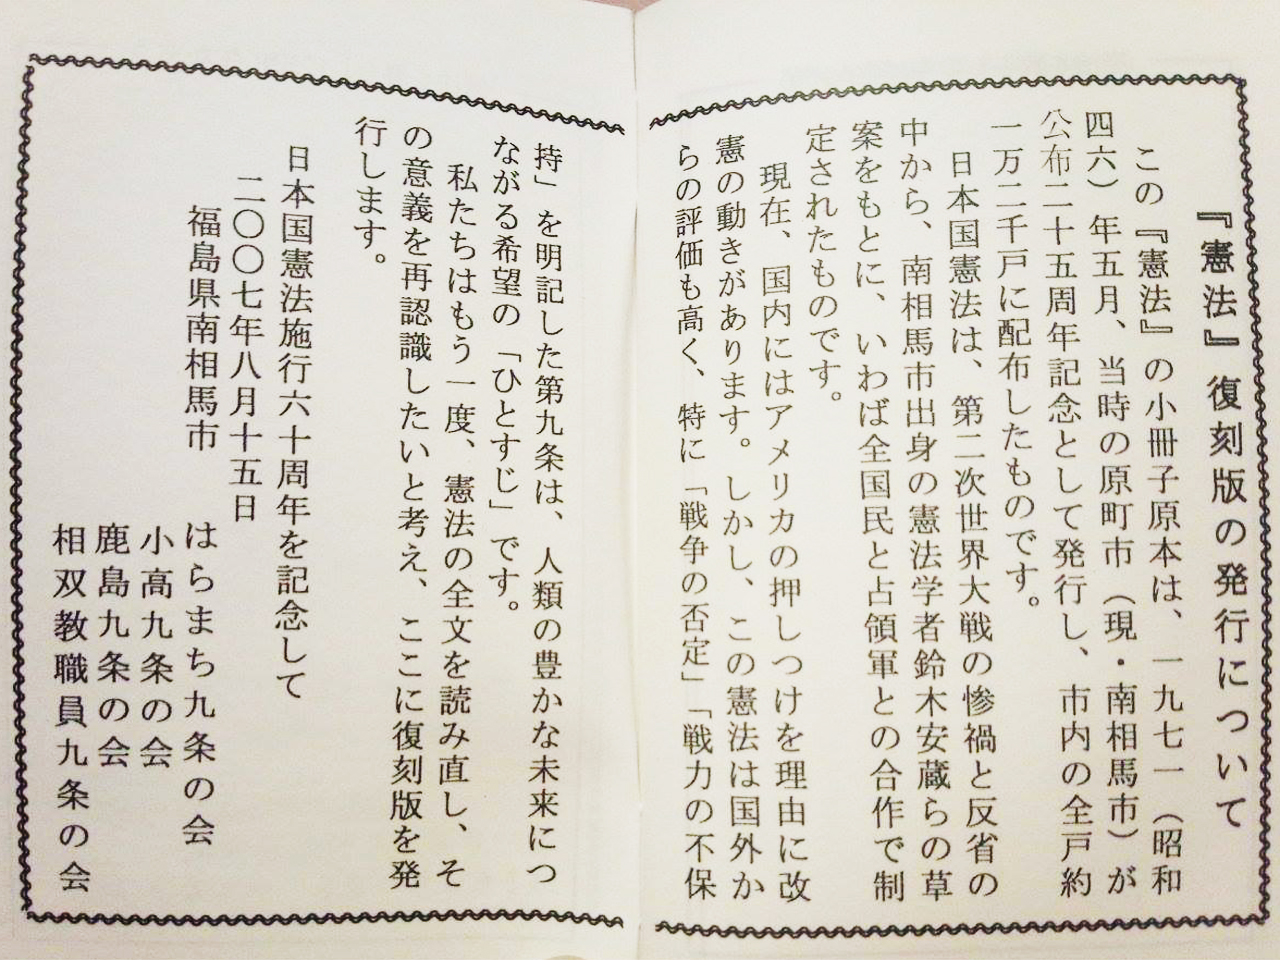 『憲法』復刻版の発行について
この『憲法』の小冊子原本は、一九七一（昭和
四六）年五月、当時の原町市（現・南相馬市）が
公布二十五周年記念として発行し、市内の全戸約
一万二千戸に配布したものです。
日本国憲法は、第二次世界大戦の惨禍と反省の
中から、南相馬市出身の憲法学者鈴木安蔵らの草
案をもとに、いわば全国民と占領軍との合作で制
定されたものです。
現在、国内にはアメリカの押しつけを理由に改
憲の動きがあります。しかし、この憲法は国外か
らの評価も高く、特に「戦争の否定」「戦力の不保
持」を明記した第九条は、人類の豊かな未来につ
ながる希望の「ひとすじ」です。
私たちはもう一度、憲法の全文を読み直し、そ
の意義を再認識したいと考え、ここに復刻版を発
行します。
日本国憲法施行六十周年を記念して
二〇〇七年八月十五日
福島県南相馬市
はらまち九条の会
小高九条の会
鹿島九条の会
相双教職員九条の会